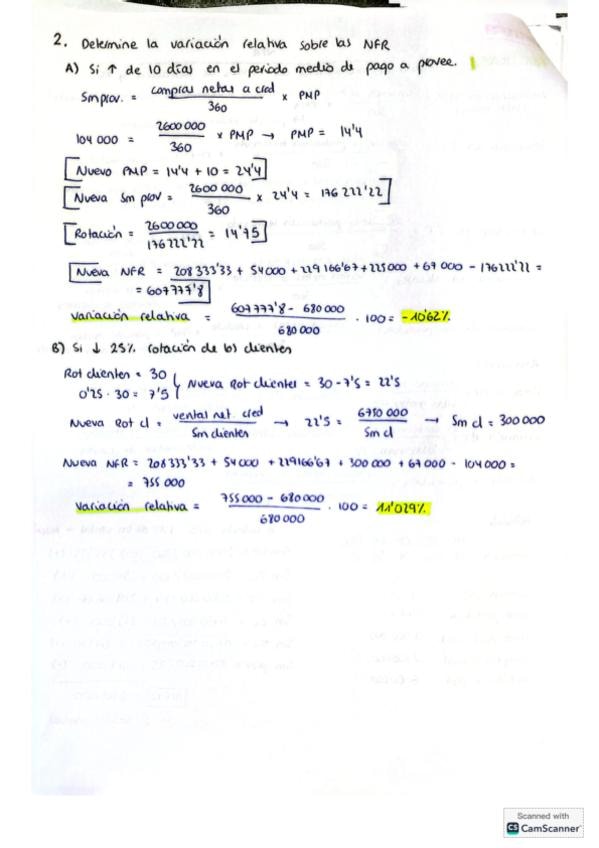 2. Determine la variación relativa sobre las NFR
A) Si ↑ de 10 días en el periodo medio de pago a provee.
Sm prov. = compras netas a créd / 360 × PMP
104 000 = 2600 000 / 360 × PMP → PMP = 14'4
[Nuevo PMP = 14'4 + 10 = 24'4]
[Nueva Sm prov = 2600 000 / 360 × 24'4 = 176 222'22]
[Rotación = 2600 000 / 176 222'22 = 14'75]
Nueva NFR = 208 333'33 + 54 000 + 229 166'67 + 225 000 + 67 000 - 176 222'22 =
= 607 777'8
Variación relativa = 607 777'8 - 680 000 / 680 000 · 100 = -10'62%
B) Si ↓ 25% rotación de los clientes
Rot clientes = 30
0'25 · 30 = 7'5
Nueva Rot clientes = 30 - 7'5 = 22'5
Nueva Rot cl = ventas net. créd / Sm clientes → 22'5 = 6750 000 / Sm cl → Sm cl = 300 000
Nueva NFR = 208 333'33 + 54 000 + 229 166'67 + 300 000 + 67 000 - 104 000 =
= 755 000
Variación relativa = 755 000 - 680 000 / 680 000 · 100 = 11'029%
Scanned with
CS CamScanner